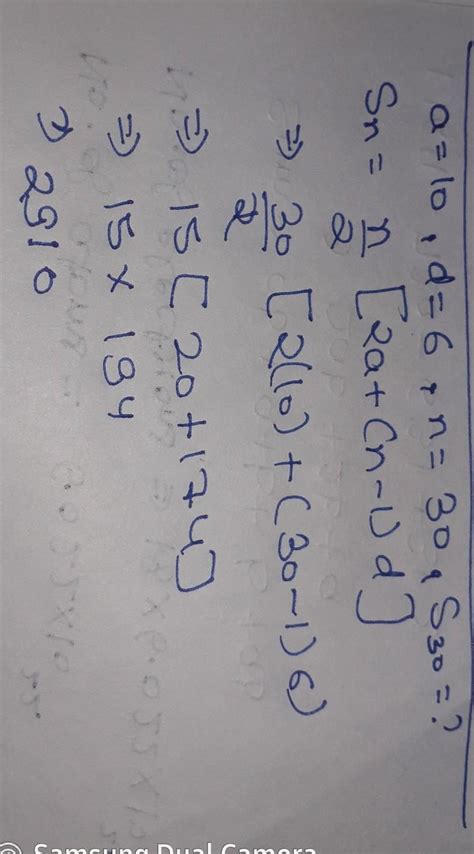 a=10, d=6, n=30, S30=?
Sn = n/2 [2a+(n-1)d]
⇒ 30/2 [2(10)+(30-1)6)
⇒ 15 [20+174]
⇒ 15 × 194
⇒ 2910
Samsung Dual Camera